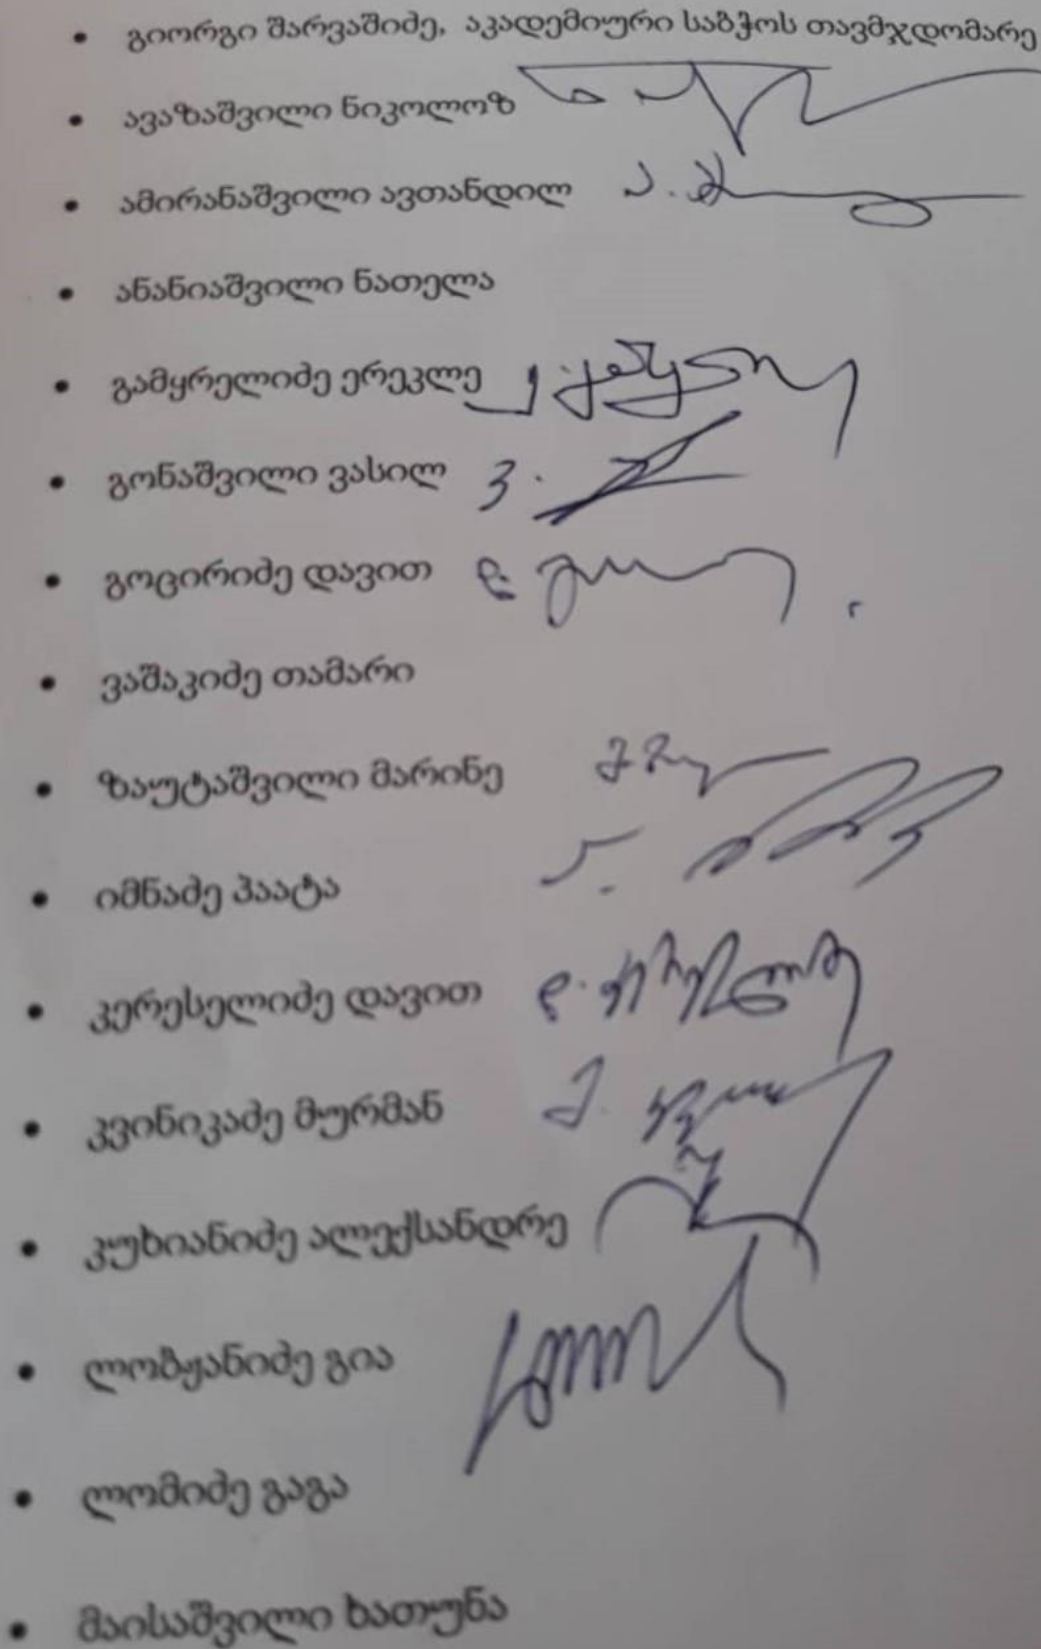 • გიორგი შარვაშიძე, აკადემიური საბჭოს თავმჯდომარე
• ავაზაშვილი ნიკოლოზ
• ამირანაშვილი ავთანდილ
• ანანიაშვილი ნათელა
• გამყრელიძე ერეკლე
• გონაშვილი ვასილ
• გოცირიძე დავით
• ვაშაკიძე თამარი
• ზაუტაშვილი მარინე
• იმნაძე პაატა
• კერესელიძე დავით
• კვინიკაძე მურმან
• კუხიანიძე ალექსანდრე
• ლობჟანიძე გია
• ლომიძე გაგა
• მაისაშვილი ხათუნა